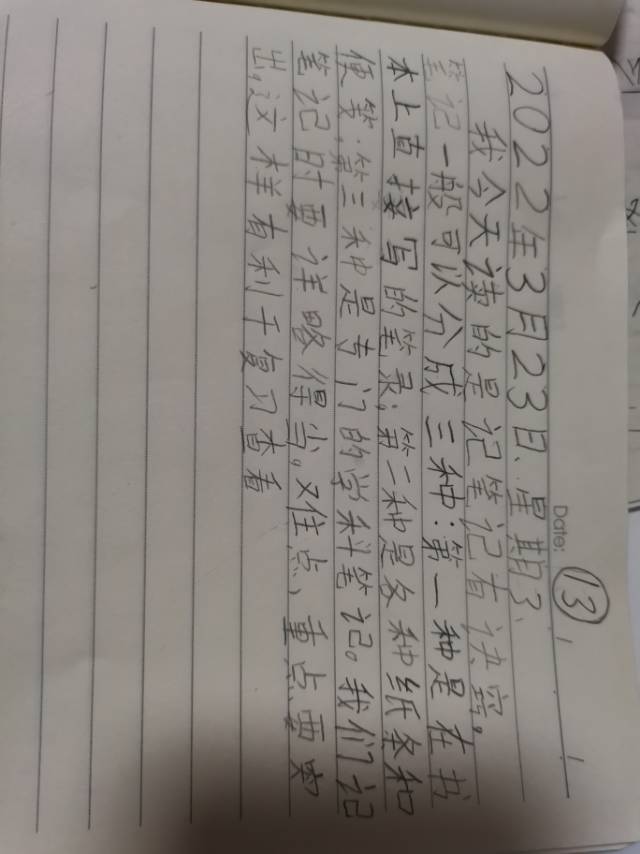 Date: ⑬
2022年3月23日、星期3、
我今天读的是记笔记有诀窍,
笔记一般可以分成三种:第一种是在书
本上直接写的笔录;第二种是各种纸条和
便笺;第三种是专门的学科笔记。我们记
笔记时要详略得当,又住点、重点要突
出,这样有利于复习查看